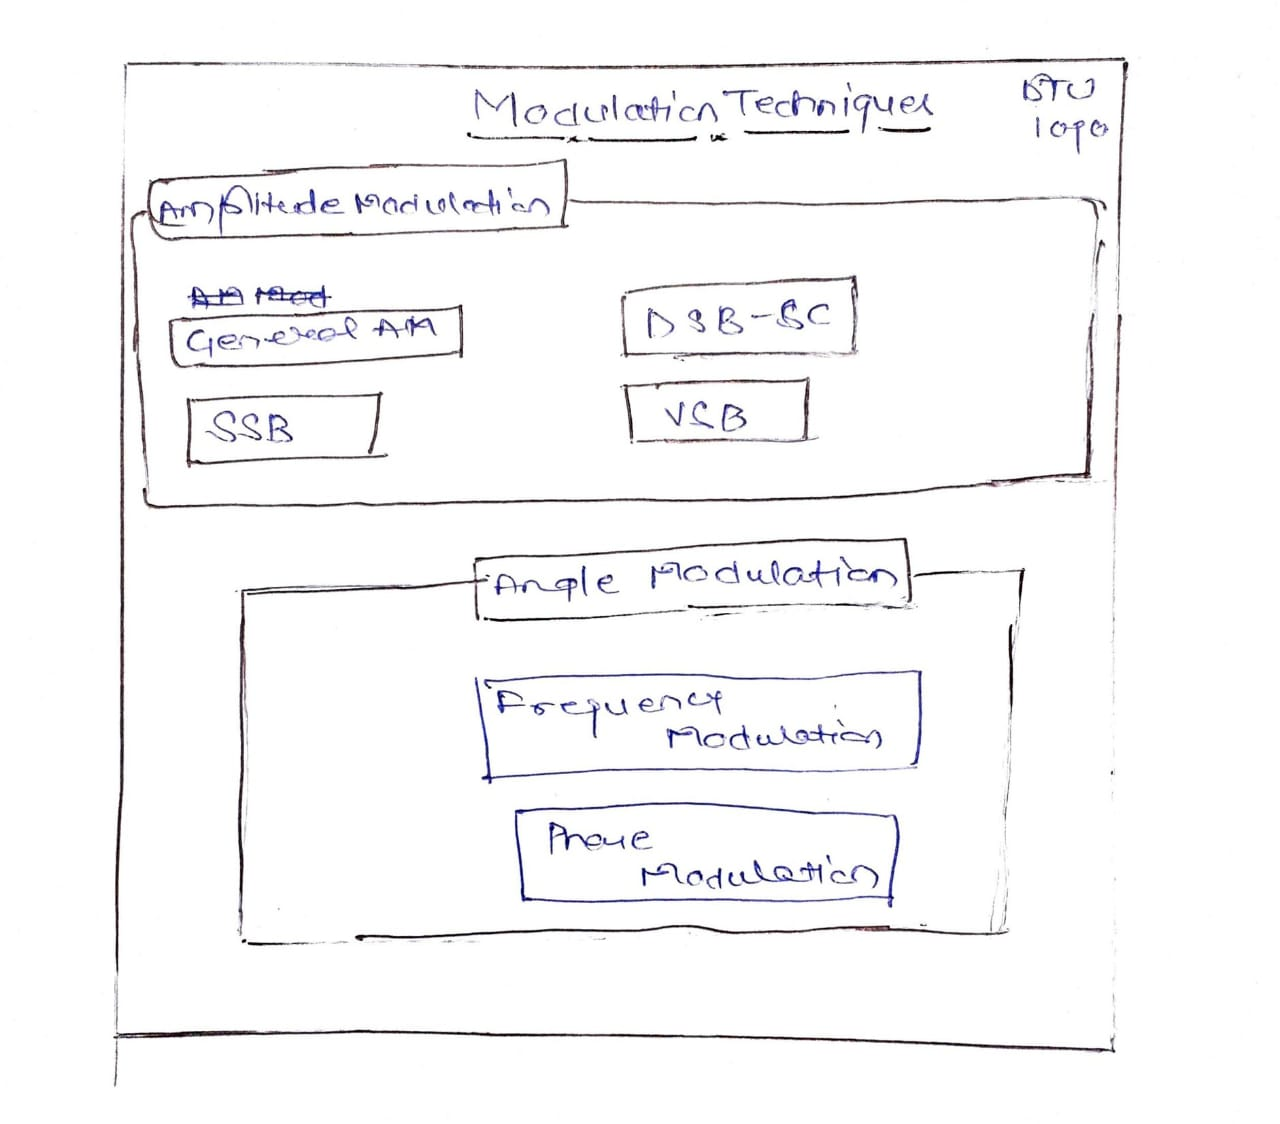 Modulation Techniques
DTU
logo
Amplitude Modulation
AM Mod
General AM
DSB-SC
SSB
VSB
Angle Modulation
Frequency
Modulation
Phase
Modulation